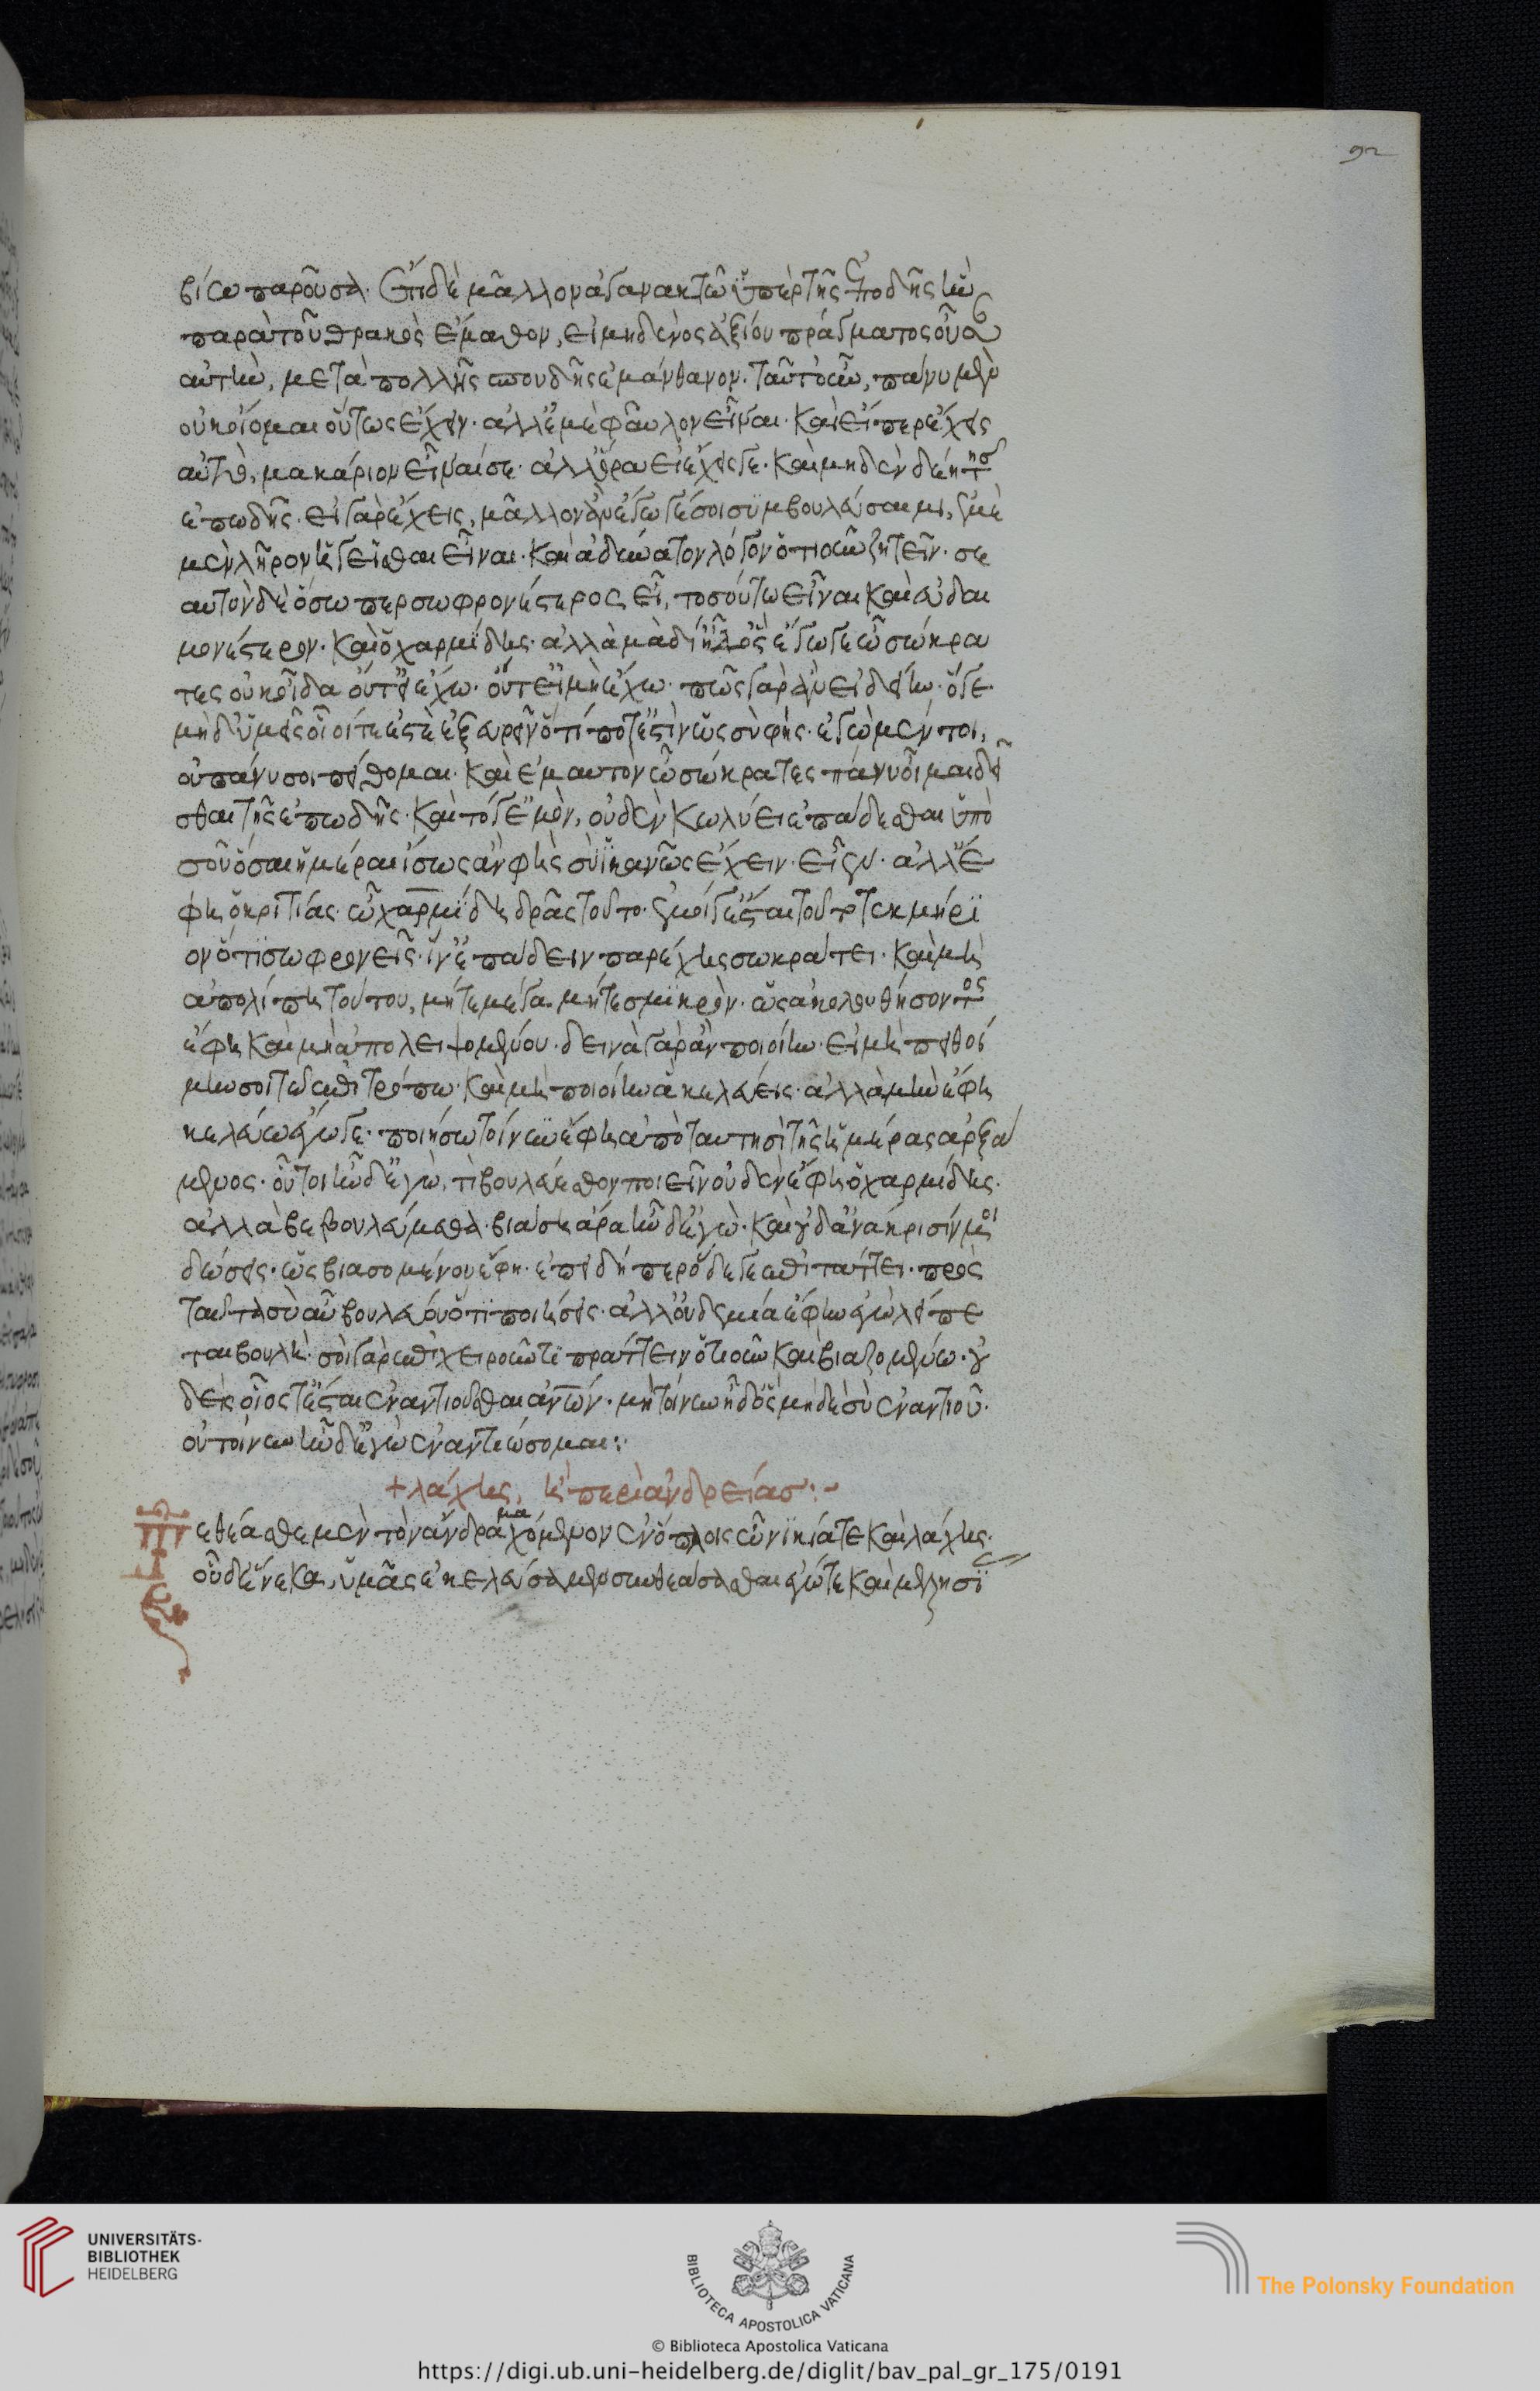 92
βίω παροῦσα. ἔτι δὲ μᾶλλον ἀγανακτῶ ὑπὲρ τῆς ἐπωδῆς ἣν
παρὰ τοῦ θρακὸς ἔμαθον, εἰ μηδενὸς ἀξίου πράγματος οὖσαν
αὐτὴν, μετὰ πολλῆς σπουδῆς ἐμάνθανον. ταῦτ' οὖν, πάνυ μὲν
οὐκ οἴομαι οὕτως ἔχειν. ἀλλ' ἐμὲ φαῦλον εἶναι. καὶ εἴπερ ἔχεις
αὐτὸ, μακάριον εἶναί σε. ἀλλ' ὅρα εἰ ἔχεις γε. καὶ μηδὲν δέη τῆσ
ἐπωδῆς. εἰ γὰρ ἔχεις, μᾶλλον ἂν ἔγωγέ σοι συμβουλεύσαιμι, ἐμὲ
μὲν λῆρον ἡγεῖσθαι εἶναι. καὶ ἀδύνατον λόγον ὁτιοῦν ζητεῖν. σε
αυτὸν δὲ ὅσω περ σωφρονέστερος εἶ, τοσούτω εἶναι καὶ εὐδαι
μονέστερον. καὶ ὁ χαρμίδης. ἀλλὰ μὰ δί' ἦ δ' ὃς ἔγωγε ὦ σώκρα
τες οὐκ οἶδα οὔτ' εἰ ἔχω. οὔτ' εἰ μὴ ἔχω. πῶς γὰρ ἂν εἰδείην. ὅ γε
μηδ' ὑμεῖς οἷοί τέ ἐστε ἐξευρεῖν ὅ τί ποτ' ἔστιν ὡς σὺ φής. ἐγὼ μέν τοι,
οὐ πάνυ σοι πείθομαι. καὶ ἐμαυτὸν ὦ σώκρατες πάνυ οἶμαι δεῖ
σθαι τῆς ἐπωδῆς. καὶ τό γ' ἐμὸν, οὐδὲν κωλύει ἐπάδεσθαι ὑπὸ
σοῦ ὅσαι ἡμέραι ἴσως ἂν φῆς σὺ ἱκανῶς ἔχειν. εἶεν. ἀλλ' ἔ
φη ὁ κριτίας. ὦ χαρμίδη δρᾶς τοῦτο. ἐμοί γ' ἔσται τοῦτο τεκμήρι
ον ὅτι σωφρονεῖς. ἢν ἐπάδειν παρέχης σωκράτει. καὶ μὴ
ἀπολίπη τούτου, μήτε μέγα μήτε σμικρὸν. ὡς ἀκολουθήσοντος
ἔφη καὶ μὴ ἀπολειψομένου. δεινὰ γὰρ ἂν ποιοίην. εἰ μὴ πειθοί
μην σοι τῶ ἐπιτρόπω. καὶ μὴ ποιοίην ἃ κελεύεις. ἀλλὰ μὴν ἔφη
κελεύω ἔγωγε. ποιήσω τοίνυν ἔφη ἀπὸ ταυτησὶ τῆς ἡμέρας ἀρξά
μενος. οὗτοι ἦν δ' ἐγὼ, τί βουλεύεσθον ποιεῖν οὐδὲν ἔφη ὁ χαρμίδης.
ἀλλὰ βεβουλεύμεθα. βιάσει ἄρα ἦν δ' ἐγὼ. καὶ οὐδ' ἀνάκρισίν μοι
δώσεις. ὡς βιασομένου ἔφη. ἐπειδή περ ὅδε γε ἐπιτάττει. πρὸς
ταῦτα σὺ αὖ βουλεύου ὅ τι ποιήσεις. ἀλλ' οὐδεμία ἔφην ἐγὼ λείπε
ται βουλή. σοὶ γὰρ ἐπιχειροῦντι πράττειν ὁτιοῦν καὶ βιαζομένω. οὐ
δεὶς οἷός τ' ἔσται ἐναντιοῦσθαι ἀνῶν. μὴ τοίνυν ἦ δ' ὃς μηδὲ σὺ ἐναντιοῦ.
οὐ τοίνυν ἦν δ' ἐγὼ ἐναντιώσομαι:
+ λάχης, ἢ περὶ ἀνδρείασ:-
τεθέασθε μὲν τὸν ἄνδρα μαχόμενον ἐν ὅπλοις ὦ νικία τε καὶ λάχης.
οὗ δ' ἕνεκα, ὑμᾶς ἐκελεύσαμεν συνθεάσασθαι ἐγώ τε καὶ μελησί
UNIVERSITÄTS-
BIBLIOTHEK
HEIDELBERG
BIBLIOTECA APOSTOLICA VATICANA
The Polonsky Foundation
© Biblioteca Apostolica Vaticana
https://digi.ub.uni-heidelberg.de/diglit/bav_pal_gr_175/0191